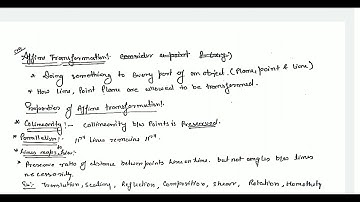 Affine Transformation:- consider
* Doing something to Every part of an object. (Plane, point & line)
* How line, Point plane are allowed to be transformed.
Properties of Affine transformation:-
* Colinearity:- Collinearity b/w Points is Preserved.
* Parallelism:- 11rd line remains 11rd.
* Lines maps
* Preserve ratio of distance between points lie on line. but not angles b/w lines
necessarily.
Ex:- Translation, Scaling, Reflection, Composition, shear, Rotation, Homothety